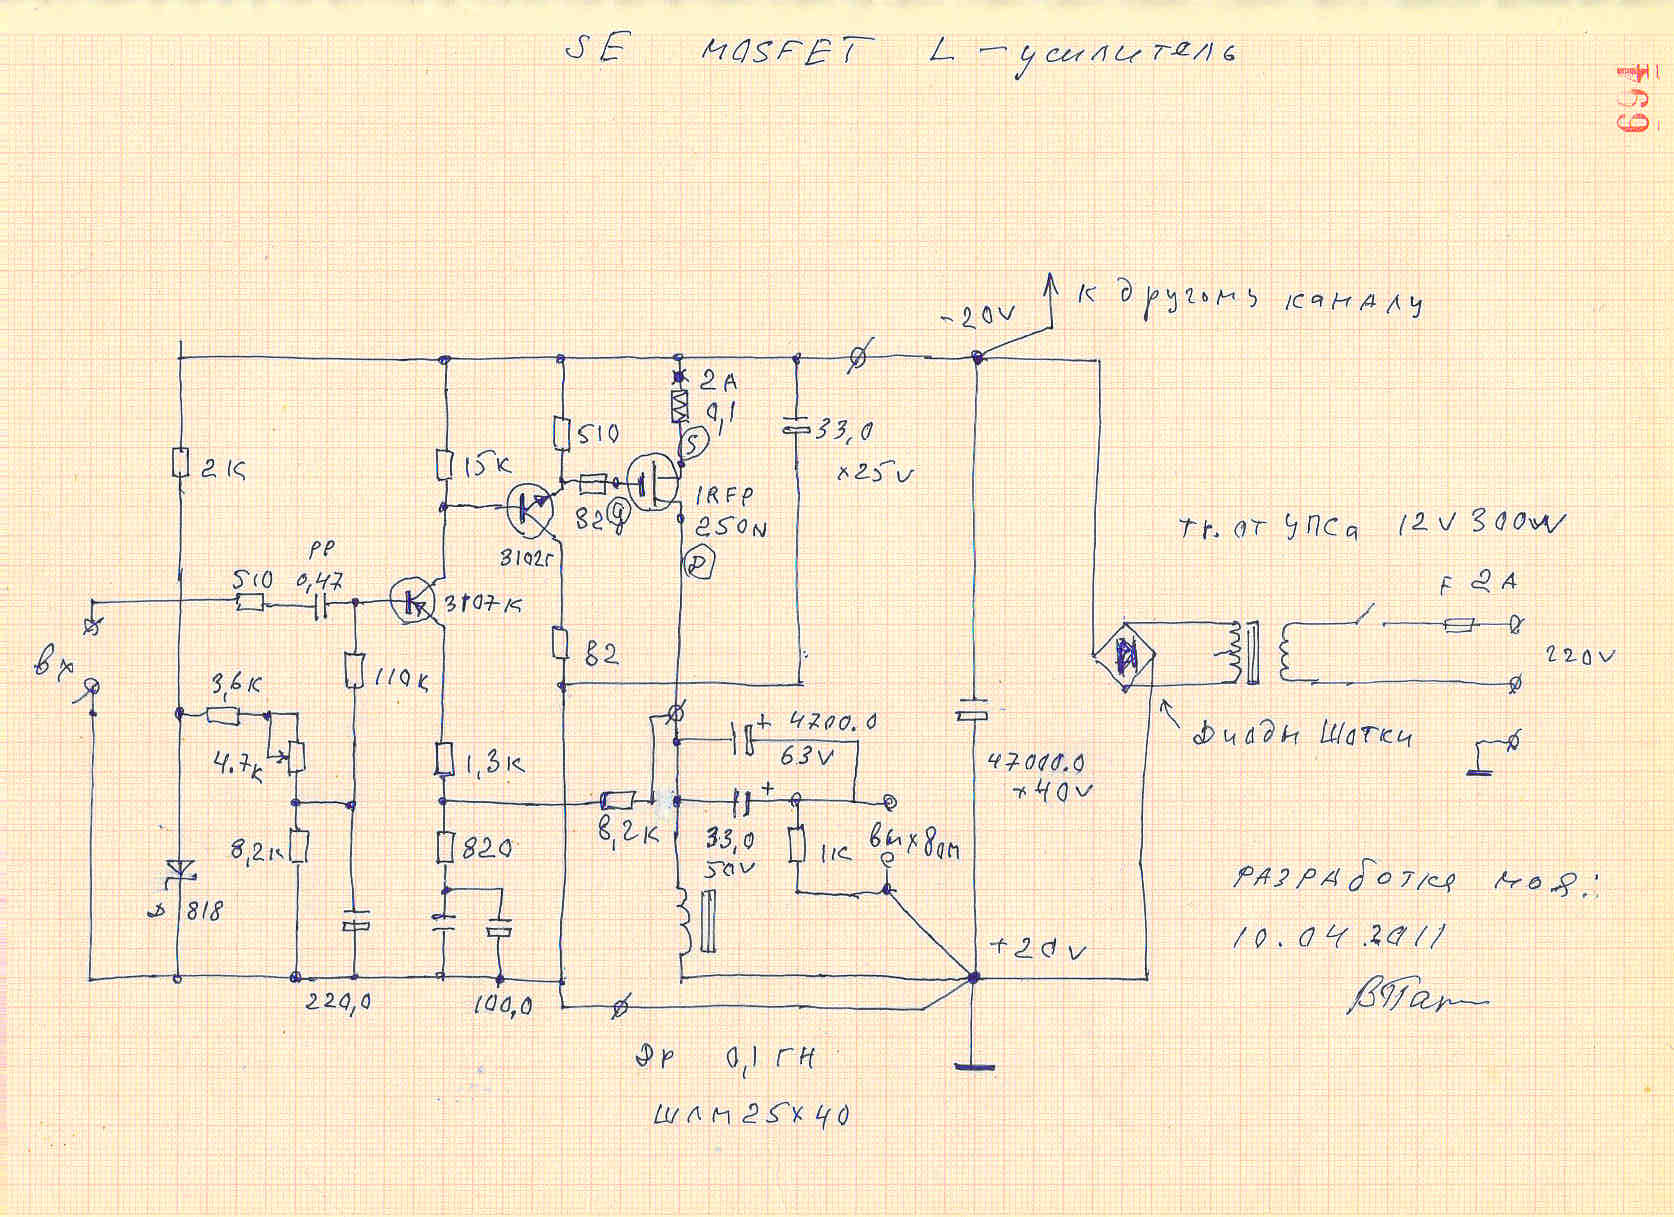 SE MOSFET L-усилитель
694
-20V
к другому каналу
2A
0,1
S
510
15к
2к
33,0
×25V
82
g
IRFP
250N
D
3102г
тр. от УПСа 12V 300W
F 2A
220V
РР
510
0,47
3107к
вх
110к
82
3,6к
4.7к
1,3к
8,2к
4700.0
63V
+
+
33,0
50V
1к
вых 8ом
8,2к
820
Д 818
47000.0
×40V
Диоды Шотки
+20V
220,0
100,0
Др 0,1 ГН
ШЛМ25×40
РАЗРАБОТКА МОЯ:
10.04.2011